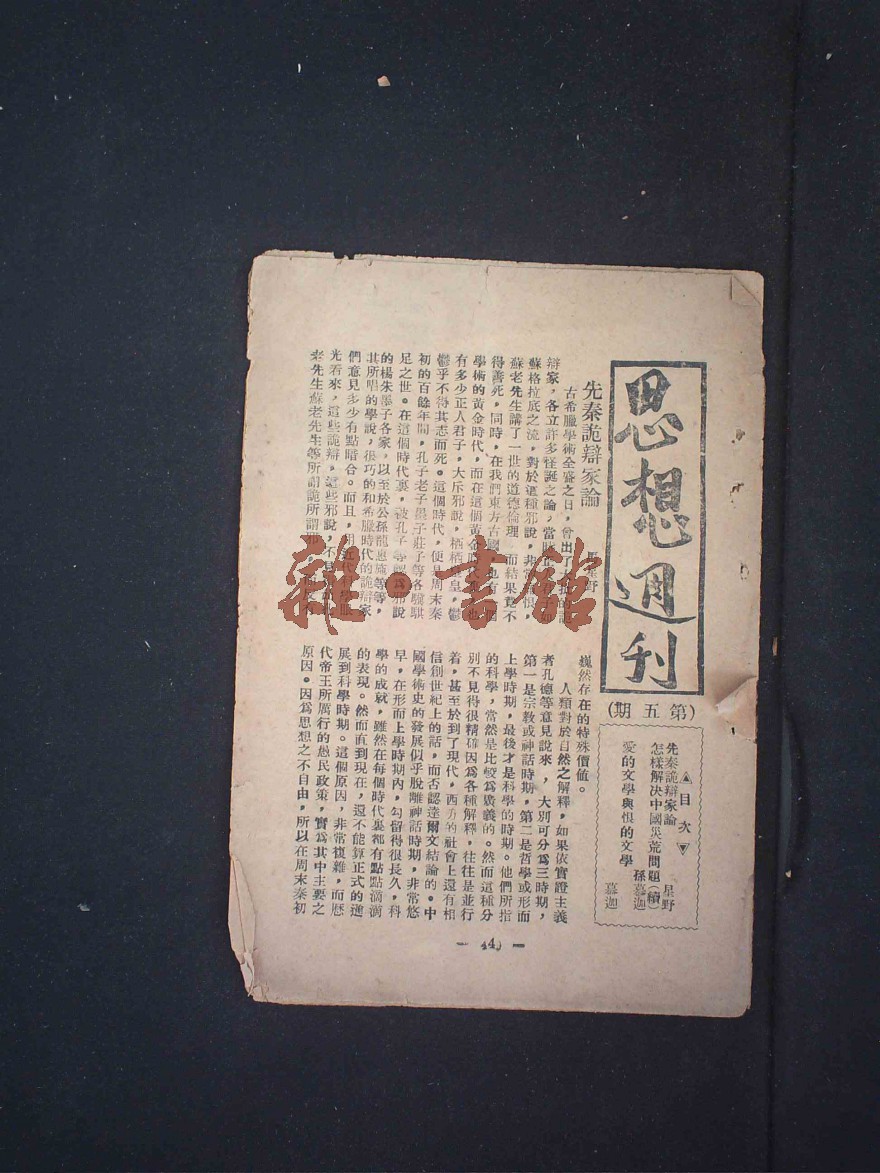 思想週刊
（第五期）
▲目次▼
先秦詭辯家論 星野
怎樣解決中國災荒問題（續） 孫慕迦
愛的文學與恨的文學 慕迦
先秦詭辯家論
星野
古希臘學術全盛之日，會出了
辯家，各立許多怪誕之論，當
蘇格拉底之流，對於這種邪說，非常
蘇老先生講了一世的道德倫理，而結果竟不
得善死，同時，在我們東方古國
學術的黃金時代，而在這個黃金時代
有多少正人君子，大斥邪說，栖栖皇皇，鬱
鬱乎不得其志而死。這個時代，便是周末秦
初的百餘年間，孔子老子墨子莊子等各騁騏
足之世。在這個時代裏，被孔子等認爲邪說
的楊朱墨子各家，以至於公孫龍惠施等等，
其所唱的學說，很巧的和希臘時代的詭辯家
們意見多少有點暗合。而且，用近代科學眼
光看來，這些詭辯，這些邪說，不
老先生蘇老先生等所謂詭所謂邪，
巍然存在的特殊價値。
人類對於自然之解釋，如果依實證主義
者孔德等意見說來，大別可分爲三時期，
第一是宗敎或神話時期，第二是哲學或形而
上學時期，最後才是科學的時期。他們所指
的科學，當然是比較爲廣義的。然而這種分
別不見得很精確因爲各種解釋，往往是並行
着，甚至於到了現代，西方的社會上還有相
信創世紀上的話，而否認達爾文結論的。中
國學術史的發展似乎脫離神話時期，非常悠
早，在形而上學時期內，勾留得很長久，科
學的成就，雖然在每個時代裏都有點點滴滴
的表現。然而直到現在，還不能算正式的進
展到科學時期。這個原因，非常複雜，而歷
代帝王所厲行的愚民政策，實爲其中主要之
原因。因爲思想之不自由，所以在周末秦初
雜·書館